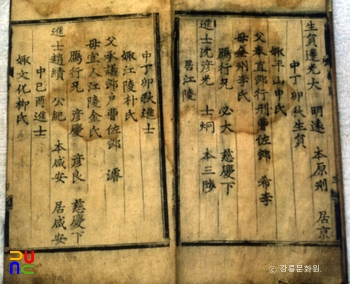 生員邊光大 明遠 本原州 居京
中丁卯秋生員
娶平山申氏
父奉直郎行刑曹佐郎 希李
母全州李氏
鴈行兄 必大 慈慶下
進士沈彦光 士炯 本三陟
居江陵
中丁卯秋進士
娶江陵朴氏
父承議郎戶曹佐郎 濬
母宜人江陵金氏
鴈行兄 彦慶 彦良 慈慶下
進士趙績 公紀 本咸安 居咸安
中己酉進士
娶文化柳氏
© 강릉문화원